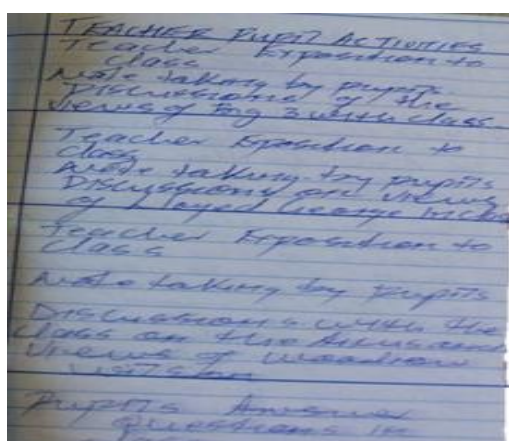 TEACHER PUPIL ACTIVITIES
Teacher Exposition to
Class
Note taking by pupils.
Discussions of the
Views of Big 3 with class.
Teacher Exposition to
Class
Note taking by pupils
Discussions on views
of Loyed George
Teacher Exposition to
Class
Note taking by pupils
Discussions with the
Class on the
Views of Woodrow
Pupils Answer
Questions in